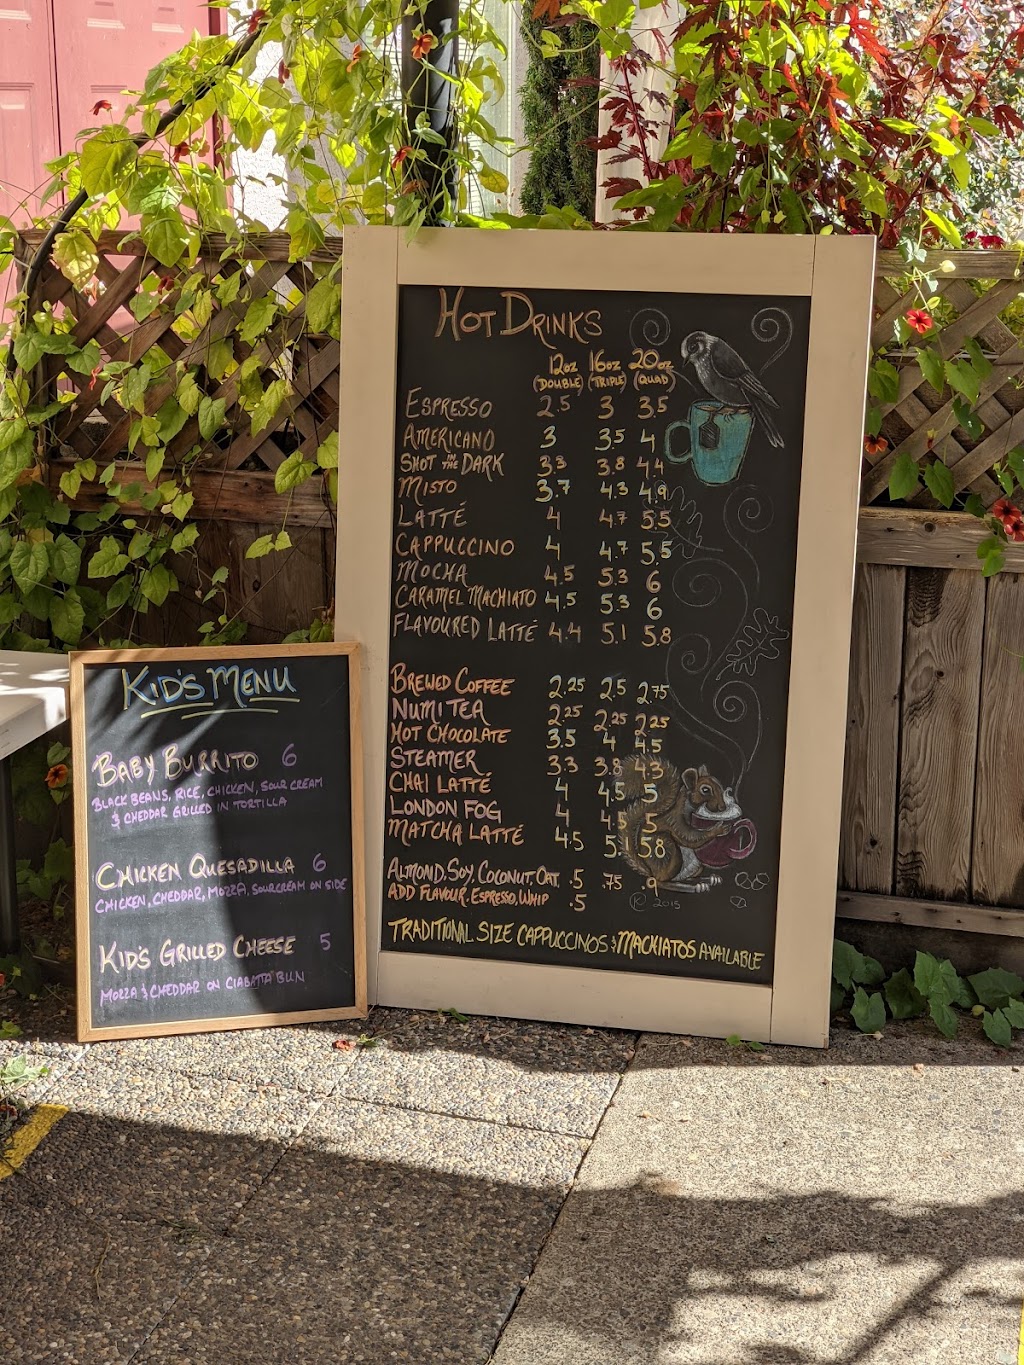 HOT DRINKS
12oz 16oz 20oz
(DOUBLE) (TRIPLE) (QUAD)
ESPRESSO 2.5 3 3.5
AMERICANO 3 3.5 4
SHOT IN THE DARK 3.3 3.8 4.4
MISTO 3.7 4.3 4.9
LATTÉ 4 4.7 5.5
CAPPUCCINO 4 4.7 5.5
MOCHA 4.5 5.3 6
CARAMEL MACHIATO 4.5 5.3 6
FLAVOURED LATTÉ 4.4 5.1 5.8
BREWED COFFEE 2.25 2.5 2.75
NUMI TEA 2.25 2.25 2.25
HOT CHOCOLATE 3.5 4 4.5
STEAMER 3.3 3.8 4.3
CHAI LATTÉ 4 4.5 5
LONDON FOG 4 4.5 5
MATCHA LATTÉ 4.5 5.1 5.8
ALMOND, SOY, COCONUT, OAT .5 .75 .9
ADD FLAVOUR, ESPRESSO, WHIP .5
2015
TRADITIONAL SIZE CAPPUCCINOS & MACKIATOS AVAILABLE
KID'S MENU
BABY BURRITO 6
BLACK BEANS, RICE, CHICKEN, SOUR CREAM
& CHEDDAR GRILLED IN TORTILLA
CHICKEN QUESADILLA 6
CHICKEN, CHEDDAR, MOZZA, SOUR CREAM ON SIDE
KID'S GRILLED CHEESE 5
MOZZA & CHEDDAR ON CIABATTA BUN